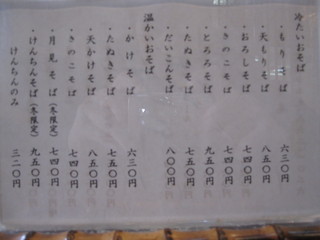 冷たいおそば
・もりそば 六三〇円
・天もりそば 八五〇円
・おろしそば 七四〇円
・きのこそば 七四〇円
・とろろそば 九五〇円
・たぬきそば 七五〇円
・だいこんそば 八〇〇円
温かいおそば
・かけそば 六三〇円
・たぬきそば 七五〇円
・天かけそば 八五〇円
・きのこそば 七四〇円
・月見そば(冬限定) 七四〇円
・けんちんそば(冬限定) 九五〇円
けんちんのみ 三二〇円